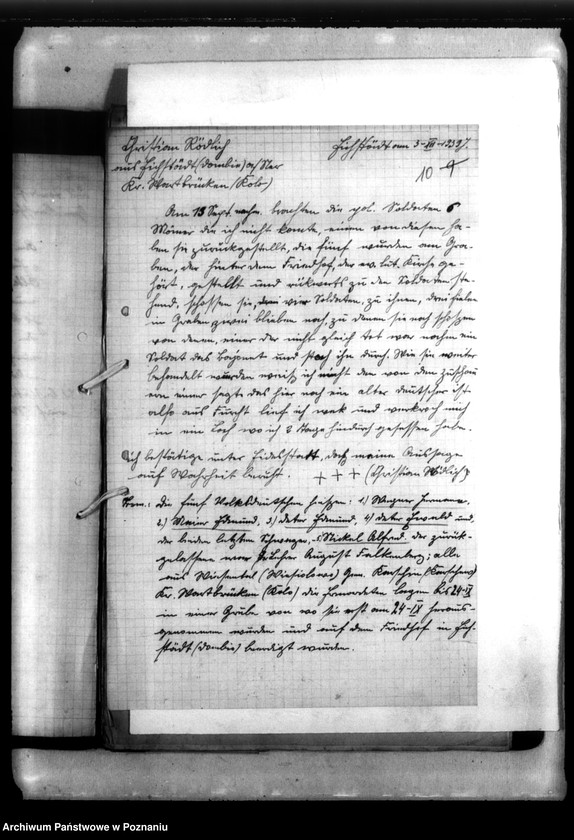 Christian Rödlich
aus Eichstädt (Dombie) a/Ner
Kr. Wartbrücken (Kolo)
Eichstädt am 3-XII-1939.
10
Am 13 Sept. nachm. brachten die pol. Soldaten 6
Männer die ich nicht kante, einen von diesen ha-
ben sie zurückgestellt, die fünf wurden am Gra-
ben, der hinter dem Friedhof, der ev. lut. Kirche ge-
hört, gestellt und rückwerts zu den Soldaten ste-
hend, schossen sie, vier Soldaten, zu ihnen, drei fielen
in Graben zwei blieben noch, zu denen sie noch schossen
von denen, einer der nicht gleich tot war nachm ein
Soldat das Bajonet und stach ihn durch. Wie sie weiter
behandelt wurden weiss ich nicht den von den zuschau
ern einer sagte das hier noch ein alter deutscher ist
also aus Furcht lief ich wek und verkroch mich
in ein Loch wo ich 2 Tage hindurch gesessen habe.
Ich bestätige unter Eidesstatt, dass meine Aussage
auf Wahrheit beruht. + + + (Christian Rödlich)
Bem.: Die fünf Volksdeutschen heissen: 1) Wegner Hermann,
2) Maier Edmund, 3) Jeter Edmund, 4) Jeter Ewald und
der beiden letzten Schwager, 5) Nickel Alfred, der zurück-
gelassene war August Falkenberg; alle
aus Wiesental (Wiesiolowo) Gem. Karschew (Karszew)
Kr. Wartbrücken (Kolo) die Ermordeten lagen bis 24-IX
in einer Grube von wo sie erst am 24-IX heraus-
genommen wurden und auf dem Friedhof in Eich-
städt (Dombie) beerdigt wurden.
Archiwum Państwowe w Poznaniu